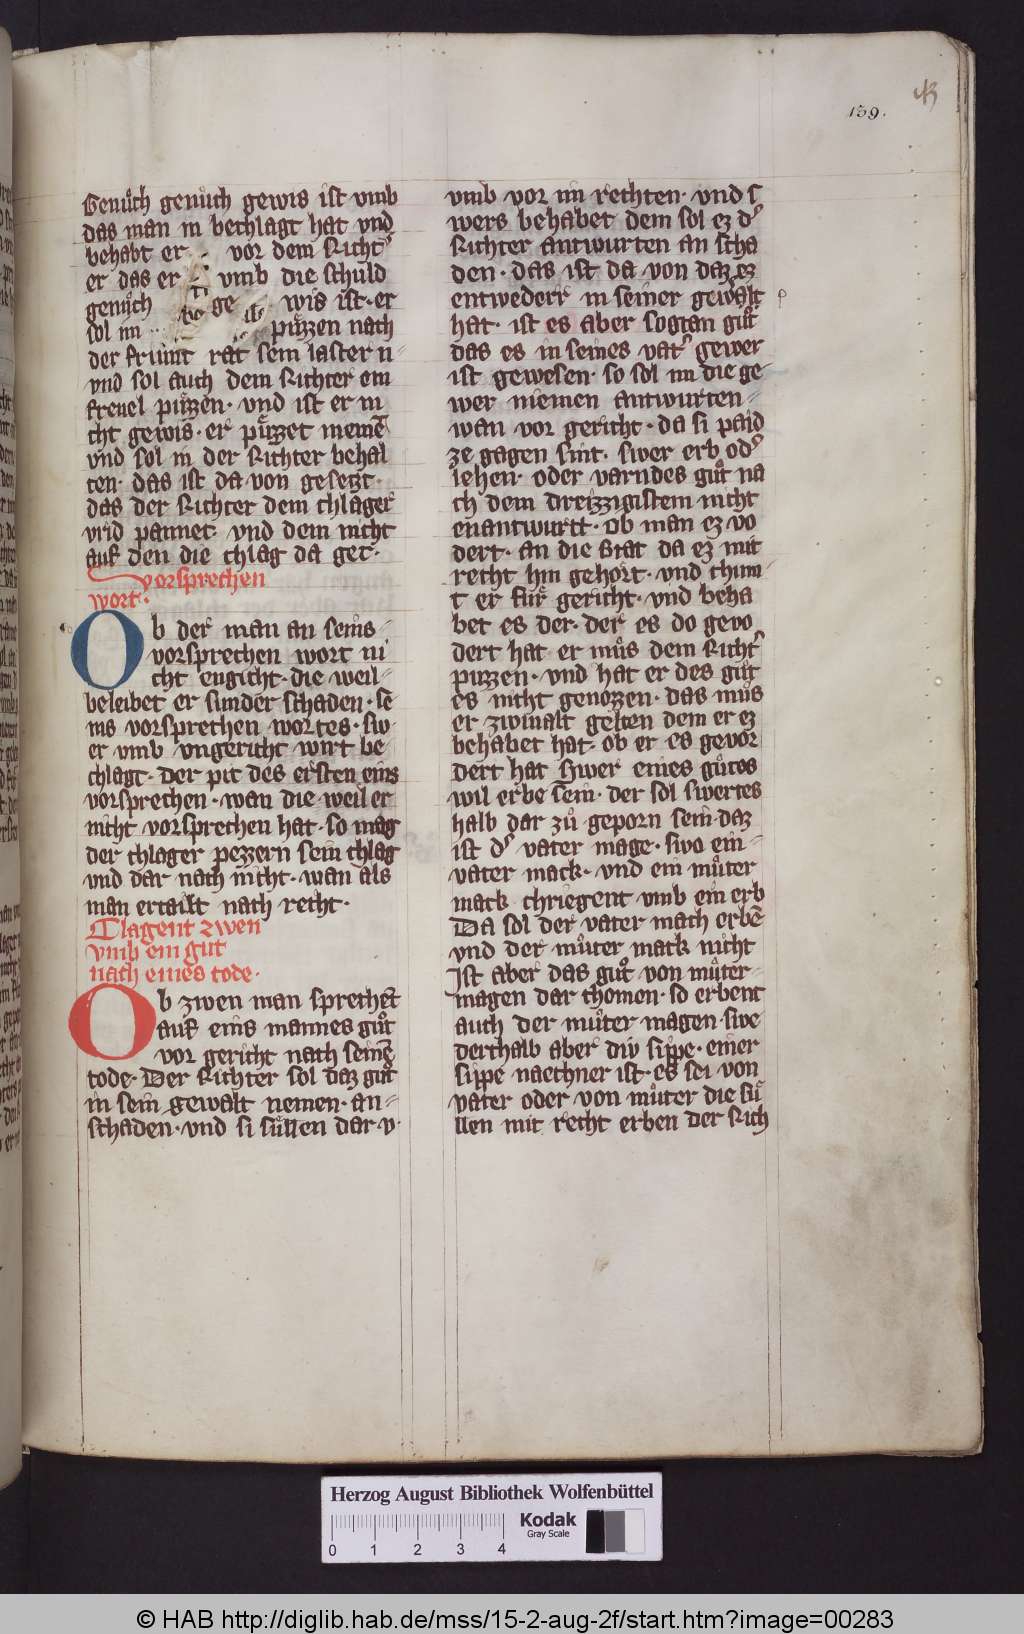 139.
Genuͦch genuͦch gewis ist vmb
das man in bechlagt hat vnd
behabt er vor dem Richt
er das er vmb die schuld
genuͦch ge wis ist · er
sol im puͤzzen nach
der friunt rat sein laster n
vnd sol auch dem Richter ein
freuel puͤzzen · vnd ist er ni
cht gewis · er puͤzzet niemē
vnd sol in der Richter behal
ten · das ist da von gesetzt
das der Richter dem chlager
vrid pannet · vnd dem nicht
auf den die chlag da get ·
vorsprechen
wort ·
Ob der man an seins
vorsprechen wort ni
cht engicht · die weil
beleibet er sunder schaden · se
ins vorsprechen wortes · sw
er vmb vngericht wirt be
chlagt · Der pit des ersten eins
vorsprechen · wan die weil er
nicht vorsprechen hat · so mag
der chlager pezzern sein chlag
vnd dar nach nicht · wan als
man ertailt nach recht ·
Clagent zwen
vmb ein gut
nach eines tode ·
Ob zwen man sprechēt
auf eins mannes guͦt
vor gericht nach seinē
tode · Der Richter sol daz guͦt
in sein gewalt nemen · an
schaden · vnd si suͤllen dar v
vmb vor im rechten · vnd s
wers behabet dem sol ez d
Richter antwurten an scha
den · das ist da von daz ez
entwederr in seiner gewalt
hat · ist es aber sogtan guͦt
das es in seines vat gewer
ist gewesen · so sol im die ge
wer niemen antwurten
wan vor gericht · da si paid
ze gagen sint · swer erb od
lehen · oder varndes guͦt na
ch dem dreizzigistem nicht
enantwurtt · ob man ez vo
dert · an die stat da ez mit
recht hin gehort · vnd chum
t er fuͤr gericht · vnd beha
bet es der · der es do gevo
dert hat er muͦs dem Richt
puzzen · vnd hat er des guͦt
es nicht genozzen · das muͦs
er zwivalt gelten dem er ez
behabet hat · ob er es gevor
dert hat Swer eines guͦtes
wil erbe sein · der sol swertes
halb dar zuͦ geporn sein daz
ist d vater mage · swo ein
vater mack · vnd ein muͦter
mack chriegent vmb ein erb
Da sol der vater mach erbē
vnd der muͦter mack nicht
Ist aber das guͦt von muͦter
magen dar chomen · so erbent
auch der muͦter magen · swe
derthalb aber div sippe · einer
sippe naechner ist · es sei von
vater oder von muͦter die suͤ
llen mit recht erben der Rich
Herzog August Bibliothek Wolfenbüttel
Kodak
Gray Scale
0 1 2 3 4
© HAB http://diglib.hab.de/mss/15-2-aug-2f/start.htm?image=00283